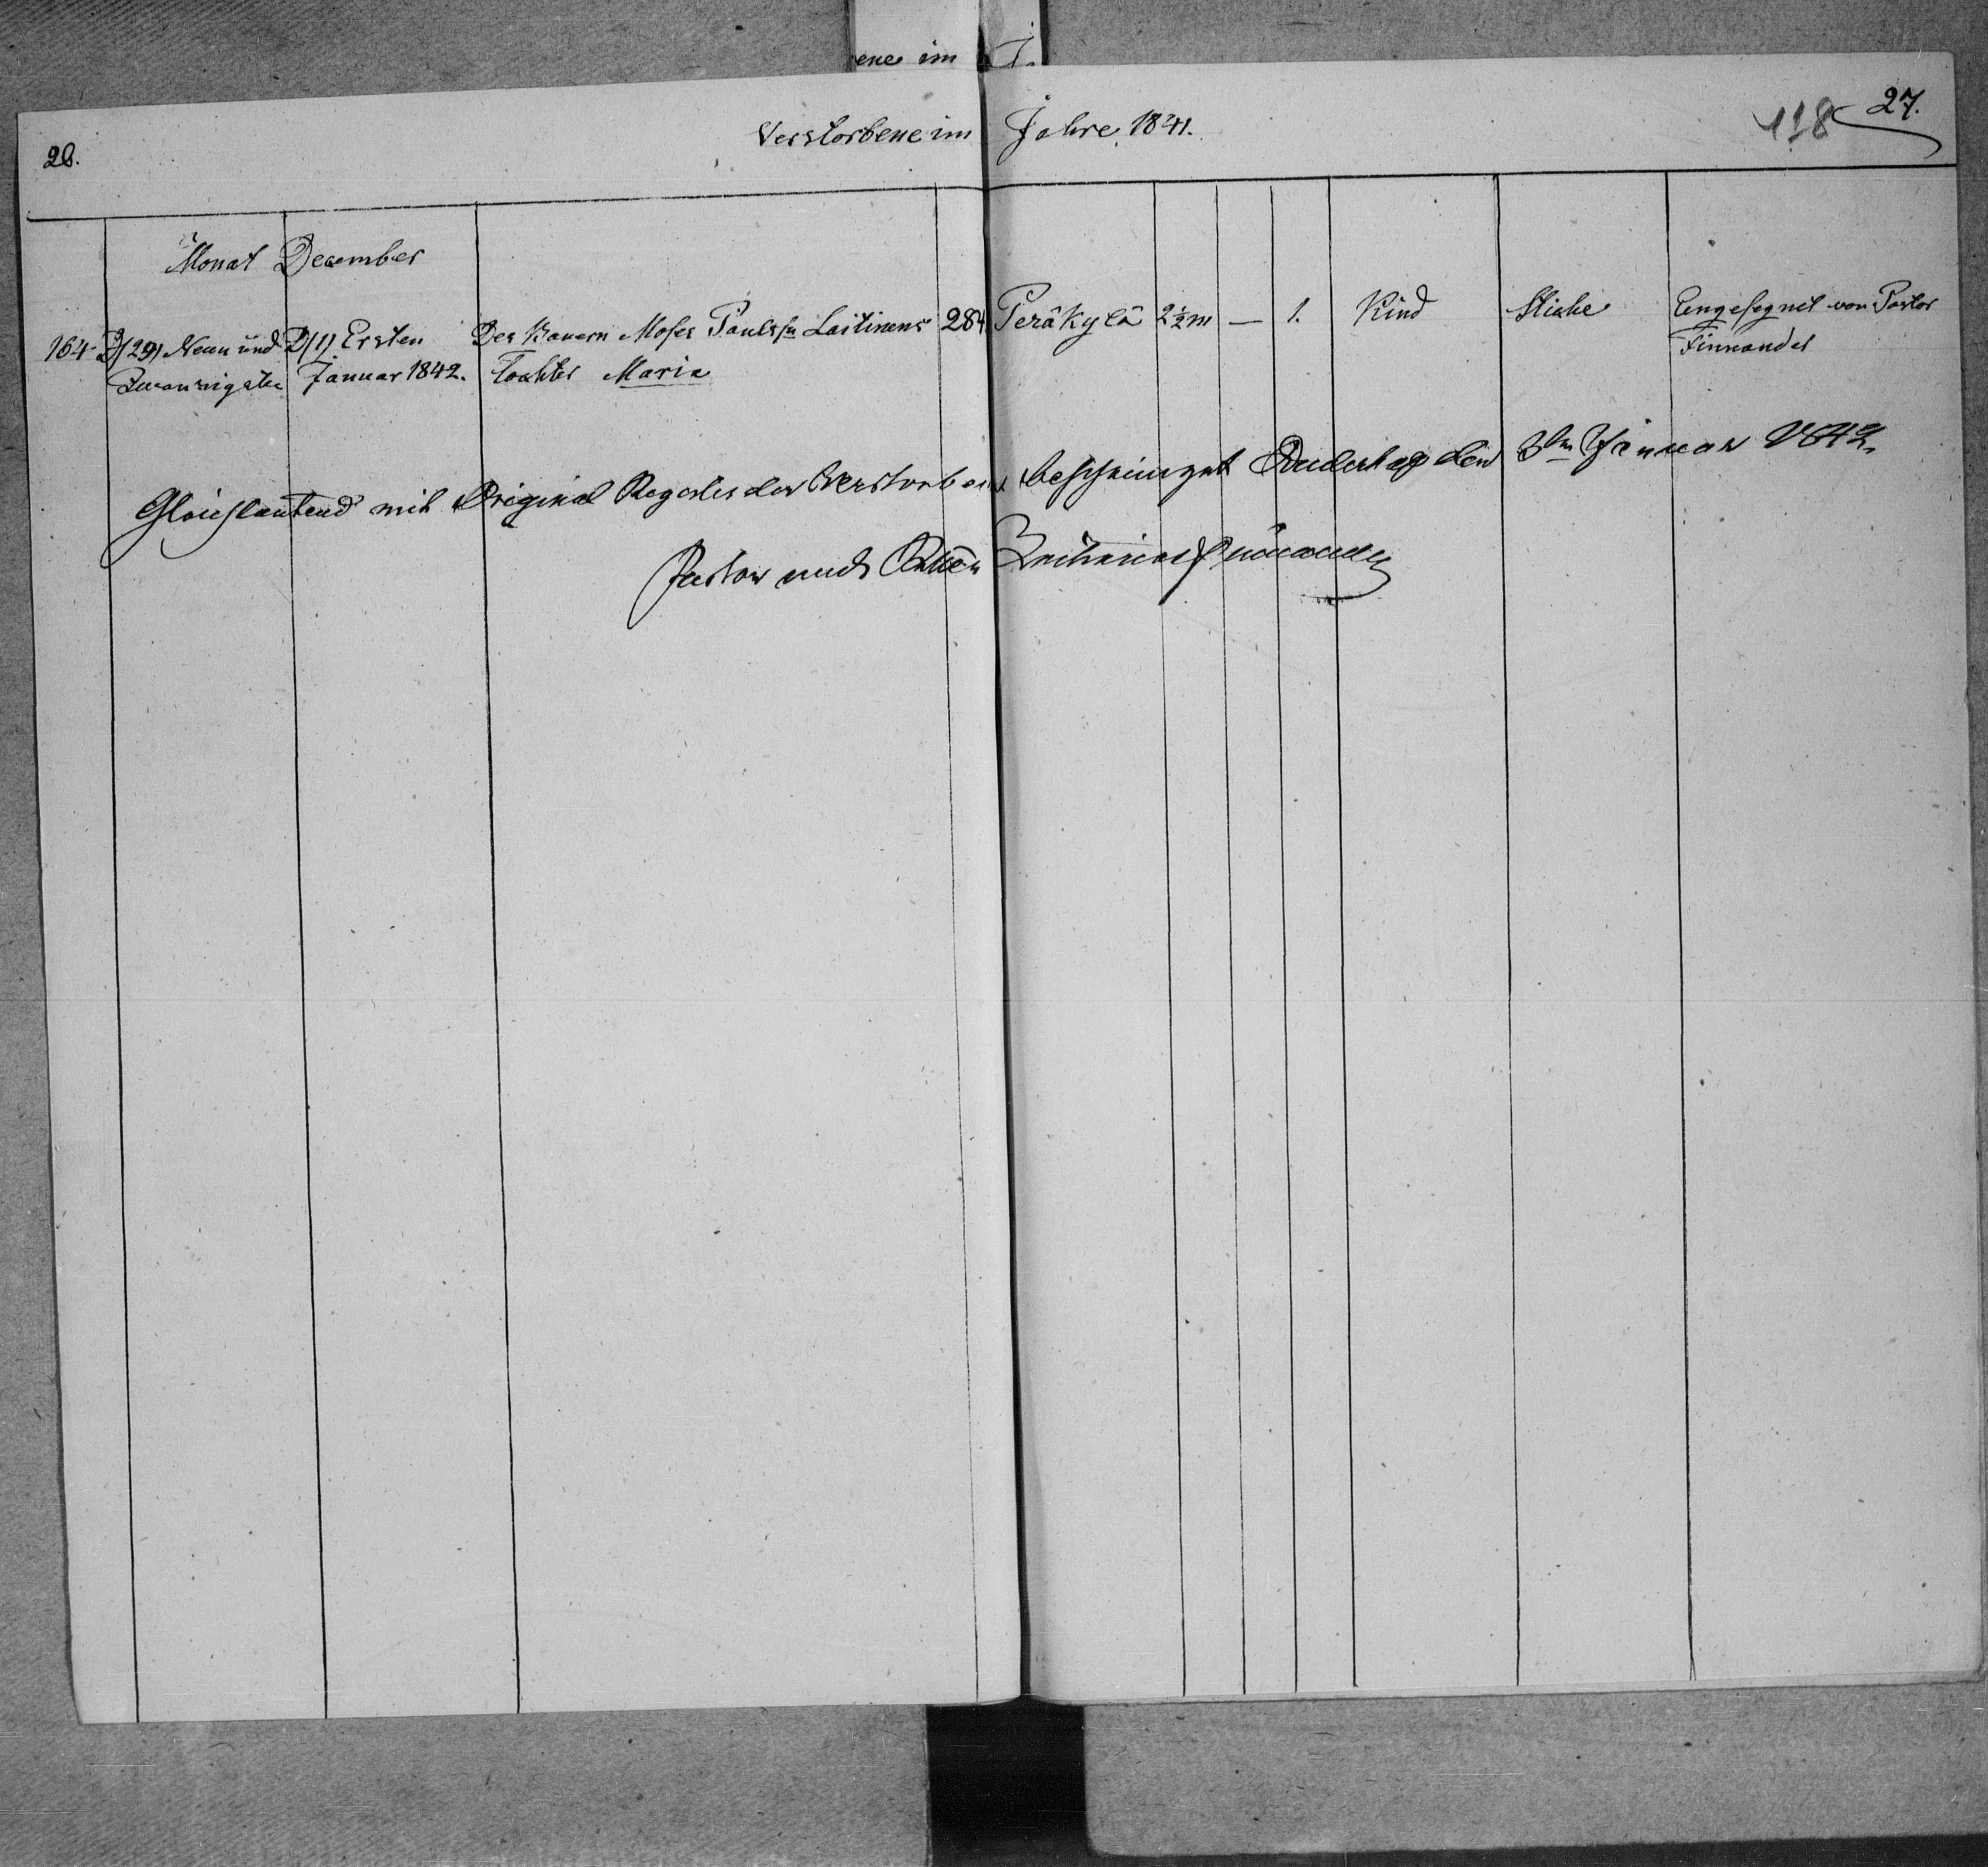 ene im J
26.
Verstorbene im Jahre 1841.
118
27.
Monat December
164. D/29/ Neun und D/1/ Ersten Des Bauern Moses Paulssn Laitinens 284 Peräkylä 2½m — 1. Kind Stiche Eingesegnet von Pastor
Zwanzigsten Januar 1842. Tochter Maria Finnander
Gleichlautend mit Original Register der Verstorbenen bescheinigt den 3ten Januar 1842.
Pastor Finnander